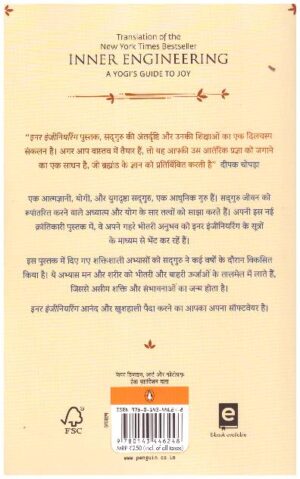 Translation of the
New York Times Bestseller
INNER ENGINEERING
A YOGI'S GUIDE TO JOY
"इनर इंजीनियरिंग पुस्तक, सद्गुरु की अंतर्दृष्टि और उनकी शिक्षाओं का एक दिलचस्प
संकलन है। अगर आप वास्तव में तैयार हैं, तो यह आपकी उस आंतरिक प्रज्ञा को जगाने
का एक साधन है, जो ब्रह्मांड के ज्ञान को प्रतिबिंबित करती है" दीपक चोपड़ा
एक आत्मज्ञानी, योगी, और युगद्रष्टा सद्गुरु, एक आधुनिक गुरु हैं। सद्गुरु जीवन को
रूपांतरित करने वाले अध्यात्म और योग के सार तत्वों को साझा करते हैं। अपनी इस नई
क्रांतिकारी पुस्तक में, वे अपने गहरे भीतरी अनुभव को इनर इंजीनियरिंग के सूत्रों
के माध्यम से भेंट कर रहे हैं।
इस पुस्तक में दिए गए शक्तिशाली अभ्यासों को सद्गुरु ने कई वर्षों के दौरान विकसित
किया है। ये अभ्यास मन और शरीर को भीतरी और बाहरी ऊर्जाओं के तालमेल में लाते हैं,
जिससे असीम शक्ति और संभावनाओं का जन्म होता है।
इनर इंजीनियरिंग आनंद और खुशहाली पैदा करने का आपका अपना सॉफ्टवेयर है।
FSC
ISBN 978-0-143-44624-8
9 780143 446248
MRP ₹250 (incl. of all taxes)
www.penguin.co.in
e
E-book available